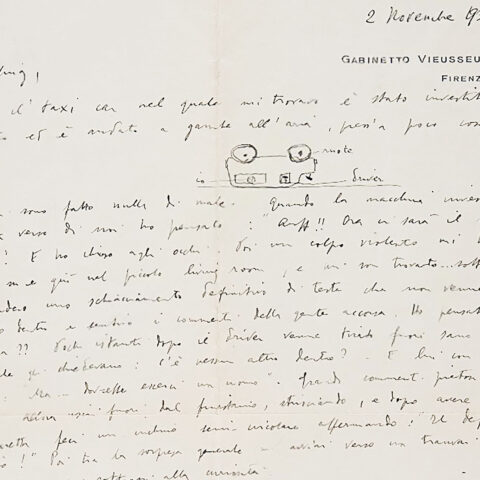 2 Novembre 19
GABINETTO VIEUSSEU
FIRENZ
il taxi car nel quale mi trovavo è stato investit
ed è andato a gambe all'aria, press'a poco cos
ruote
io
driver
sono fatto nulla di male. Quando la macchina inves
verso di noi ho pensato: "Auff!! Ora ci sarà il
? E ho chiuso gli occhi. Poi un colpo violento mi
su e giù nel piccolo living room, e mi son trovato...
uno schiacciamento definitivo di testa che non venne
dentro e sentivo i commenti della gente accorsa. Ho pensat
?? Pochi istanti dopo il driver venne tirato fuori sano
gli chiedevano: c'è nessun altro dentro? - E lui con
Ma... dovrebbe esserci un uomo". Grandi commenti
uscii fuori dal finestrino, strisciando, e dopo avere
feci un inchino semicircolare affermando: "
!" Poi tra la sorpresa generale mi avviai verso un tranvai
alla curiosità